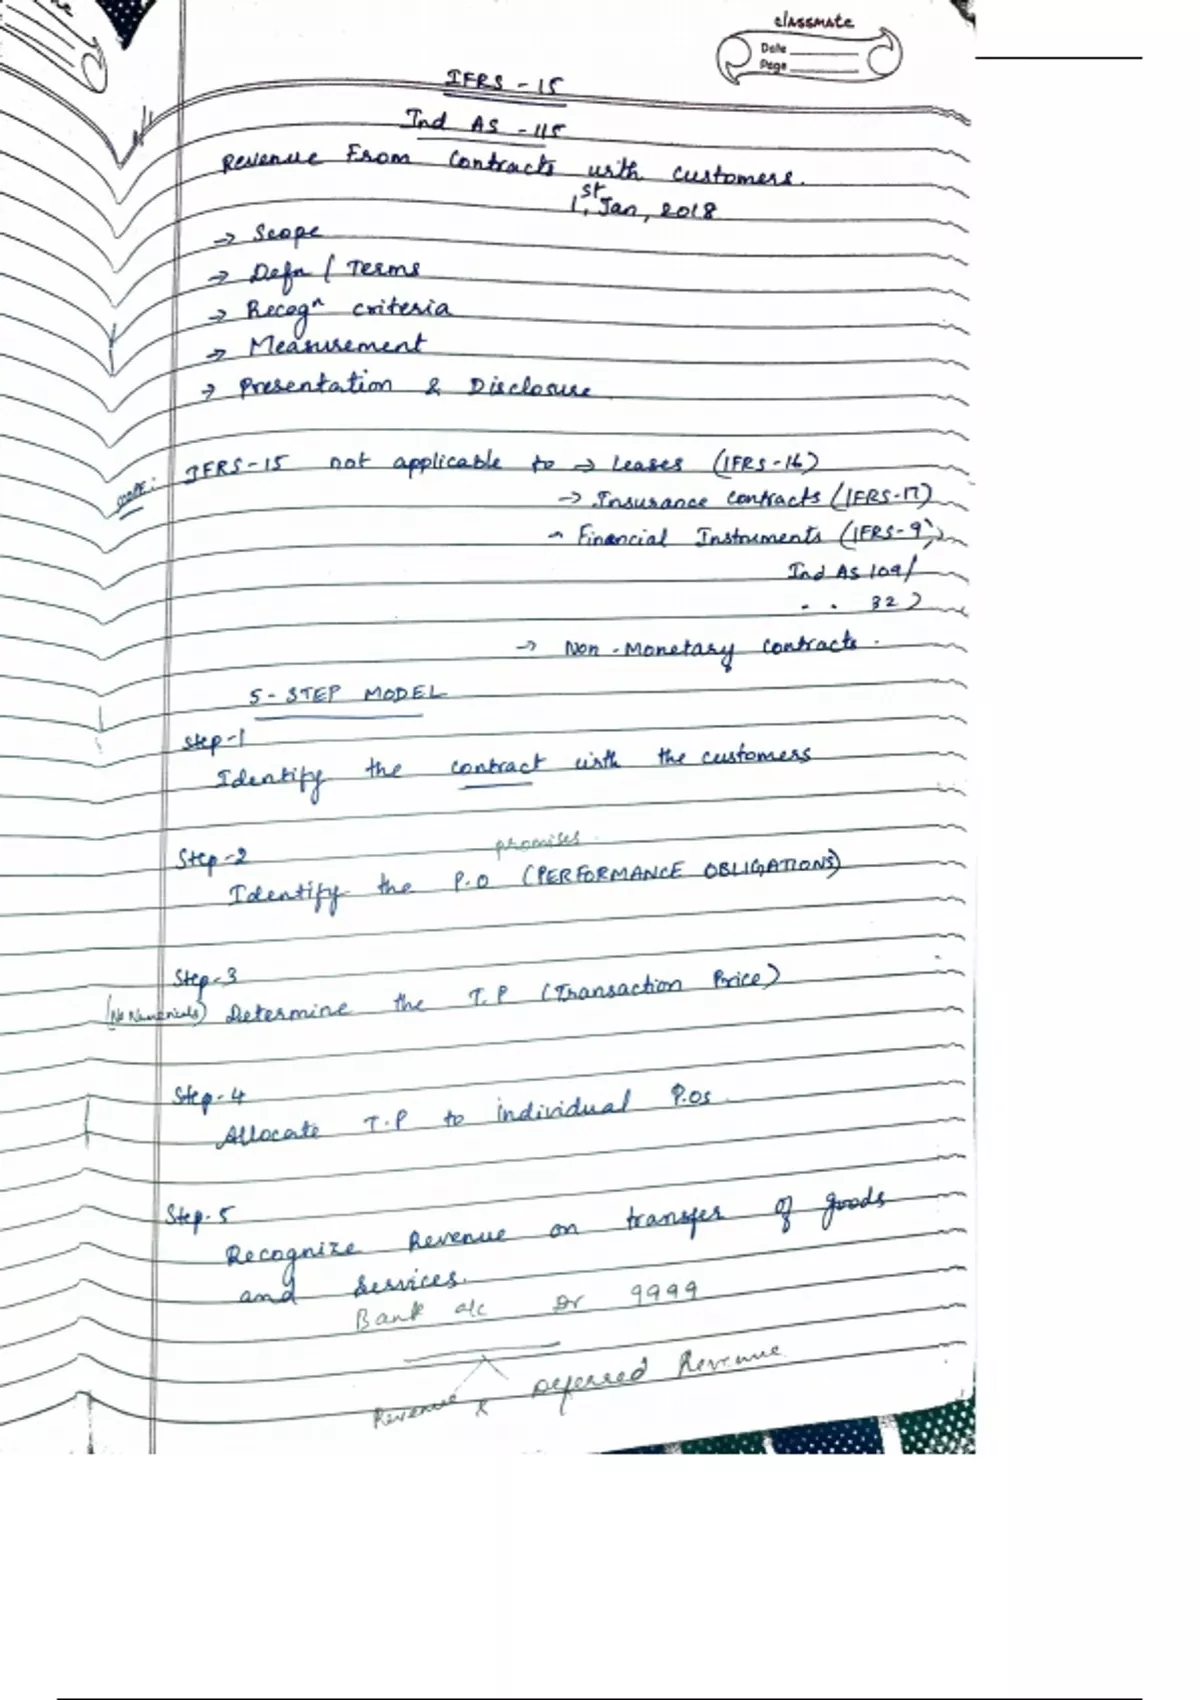 classmate
Date
Page
IFRS - 15
Ind AS - 115
Revenue From Contracts with customers.
1st Jan, 2018
→ Scope
→ Defn / Terms
→ Recogn criteria
→ Measurement
→ Presentation & Disclosure
scope: IFRS-15 not applicable to → Leases (IFRS-16)
→ Insurance contracts (IFRS-17)
- Financial Instruments (IFRS-9)
Ind AS 109/
. . 32)
→ Non-Monetary contracts.
5-STEP MODEL
Step-1
Identify the contract with the customers
promises
Step-2
Identify the P.O (PERFORMANCE OBLIGATIONS)
Step-3
(No Numericals) Determine the T.P (Transaction Price)
Step-4
Allocate T.P to individual P.Os.
Step-5
Recognize Revenue on transfer of goods
and services.
Bank a/c Dr 9999
Revenue & Deferred Revenue